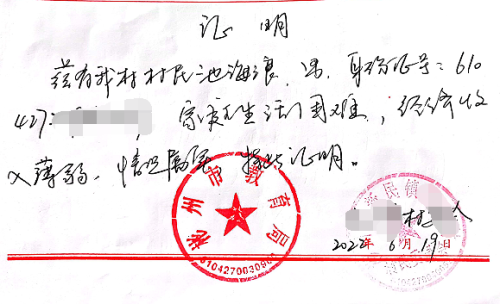 证明
兹有我村村民池海浪,男,身份证号:610
427 家庭生活困难,经济收
入薄弱,情况属实 特此证明。
彬州市教育局
6104270030960
民镇
村 人
2022年6月19日